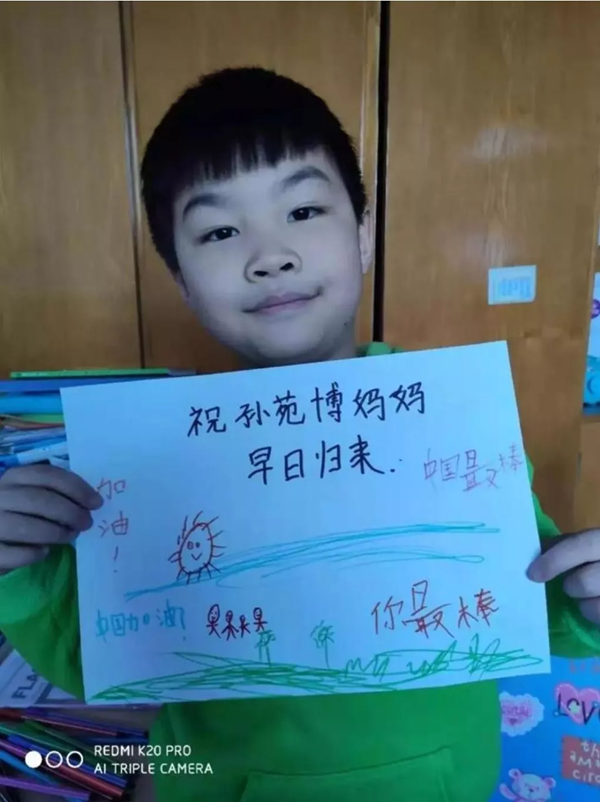 祝孙苑博妈妈
早日归来.
中国最棒
加
油
!
中国加油!
果果果果
你最棒
REDMI K20 PRO
AI TRIPLE CAMERA
FLA
LOVE